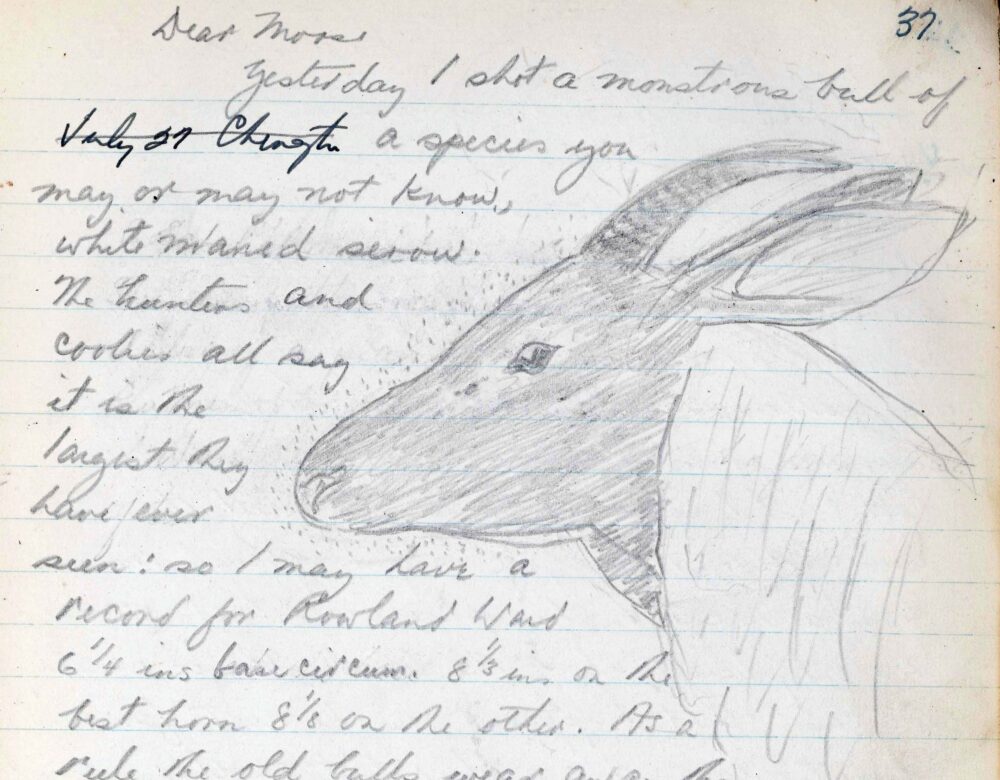 37
Dear Moose
Yesterday I shot a monstrous bull of
July 27 Chengtu a species you
may or may not know,
white maned serow.
The hunters and
coolies all say
it is the
largest they
have ever
seen: so I may have a
record for Rowland Ward
6 1/4 ins base circum. 8 1/3 ins on the
best horn 8 1/8 on the other. As a
rule the old bulls wear away the